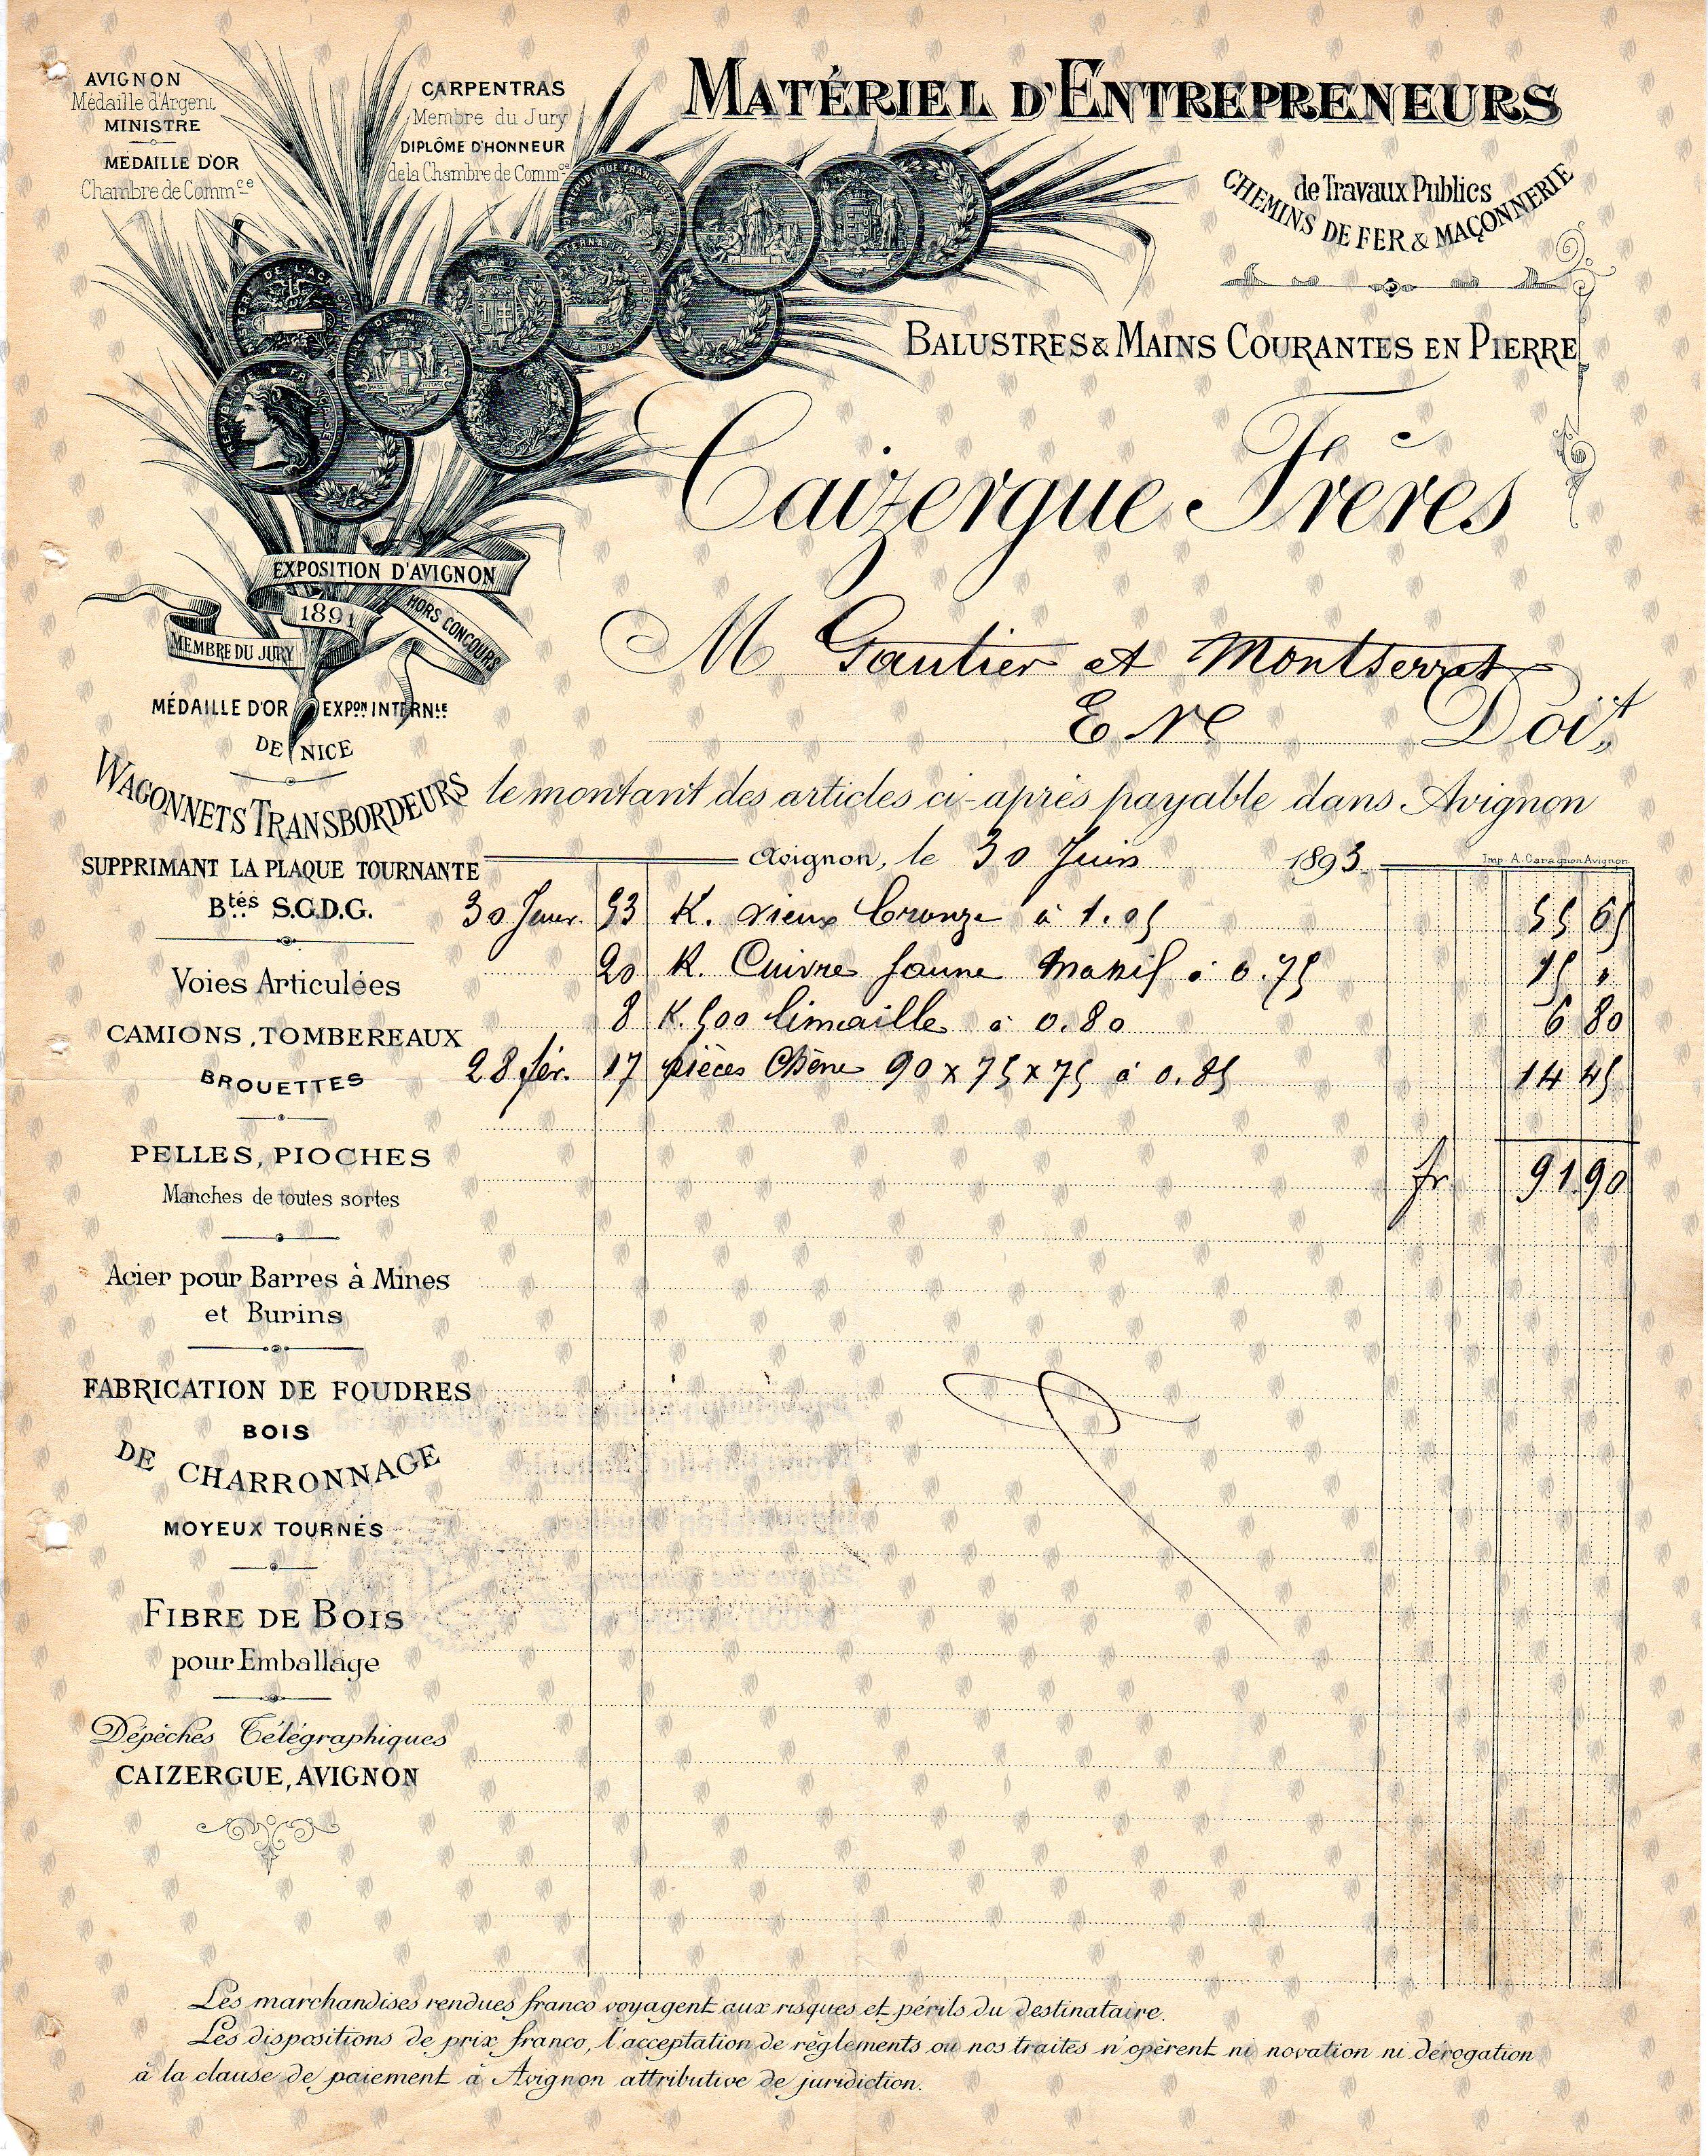 AVIGNON
Médaille d'Argent
MINISTRE
MÉDAILLE D'OR
Chambre de Commce
CARPENTRAS
Membre du Jury
DIPLÔME D'HONNEUR
de la Chambre de Commce
MATÉRIEL D'ENTREPRENEURS
de Travaux Publics
CHEMINS DE FER & MAÇONNERIE
BALUSTRES & MAINS COURANTES EN PIERRE
Caizergue Frères
EXPOSITION D'AVIGNON
1891
HORS CONCOURS
MEMBRE DU JURY
MÉDAILLE D'OR EXPON INTERNLE
DE NICE
M Gautier et Montserrat
E Ve Doit,
le montant des articles ci-après payable dans Avignon
Avignon, le 30 Juin 1893
Imp. A. Caragnon Avignon
30 Janv. 53 K. vieux bronze à 1.05 55 65
20 K. Cuivre Jaune Massif à 0.75 15 "
8 K. 500 limaille à 0.80 6 80
28 fév. 17 pièces Chêne 90 x 75 x 75 à 0.85 14 45
fr 91 90
WAGONNETS TRANSBORDEURS
SUPPRIMANT LA PLAQUE TOURNANTE
Btés S.G.D.G.
Voies Articulées
CAMIONS, TOMBEREAUX
BROUETTES
PELLES, PIOCHES
Manches de toutes sortes
Acier pour Barres à Mines
et Burins
FABRICATION DE FOUDRES
BOIS
DE CHARRONNAGE
MOYEUX TOURNÉS
FIBRE DE BOIS
pour Emballage
Dépêches Télégraphiques
CAIZERGUE, AVIGNON
Les marchandises rendues franco voyagent aux risques et périls du destinataire.
Les dispositions de prix franco, l'acceptation de règlements ou nos traites n'opèrent ni novation ni dérogation
à la clause de paiement à Avignon attributive de juridiction.